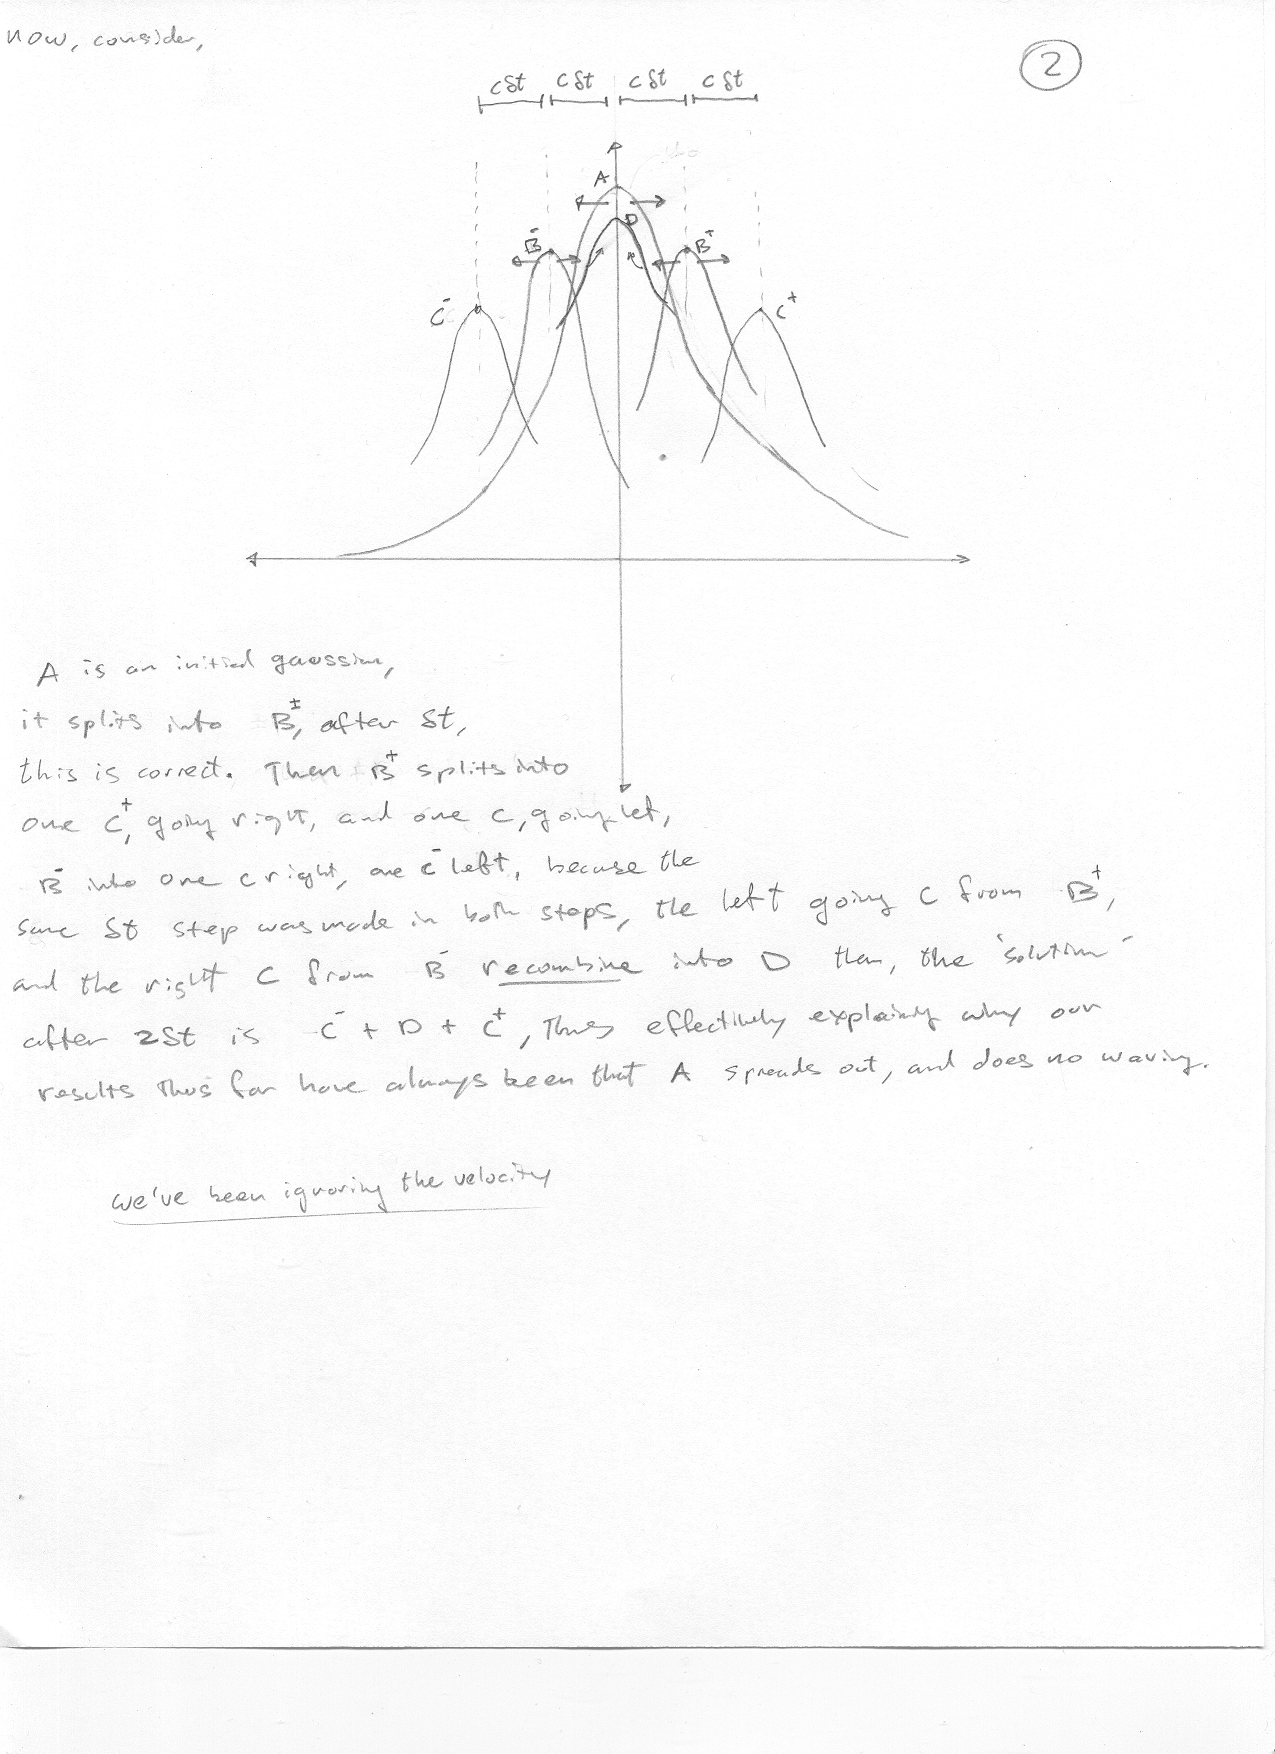 now, consider,
2
cδt cδt cδt cδt
A
D
B⁻ B⁺
C⁻ C⁺
A is an initial gaussian,
it splits into B±, after δt,
this is correct. Then B⁺ splits into
one C⁺, going right, and one C, going left,
B⁻ into one C right, one C⁻ left, because the
same δt step was made in both steps, the left going C from B⁺,
and the right C from B⁻ recombine into D then, the "solution"
after 2δt is C⁻ + D + C⁺, thus effectively explaining why our
results thus far have always been that A spreads out, and does no waving.
we've been ignoring the velocity